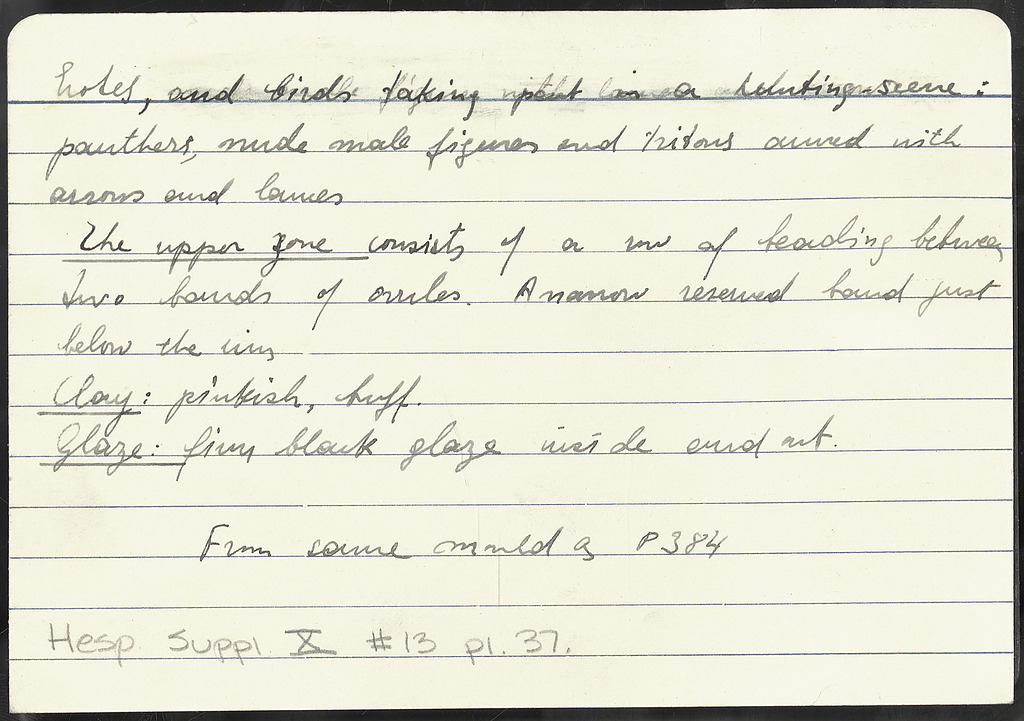 and birds taking a hunting-scene:
panthers, nude male figures and tritons armed with
arrows and lances
The upper zone consists of a row of beading between
two bands of ovules. A narrow reserved band just
below the rim
Clay: pinkish, buff.
Glaze: firm black glaze inside and out.
From same mould as P 384
Hesp. Suppl. X #13 pl. 37.